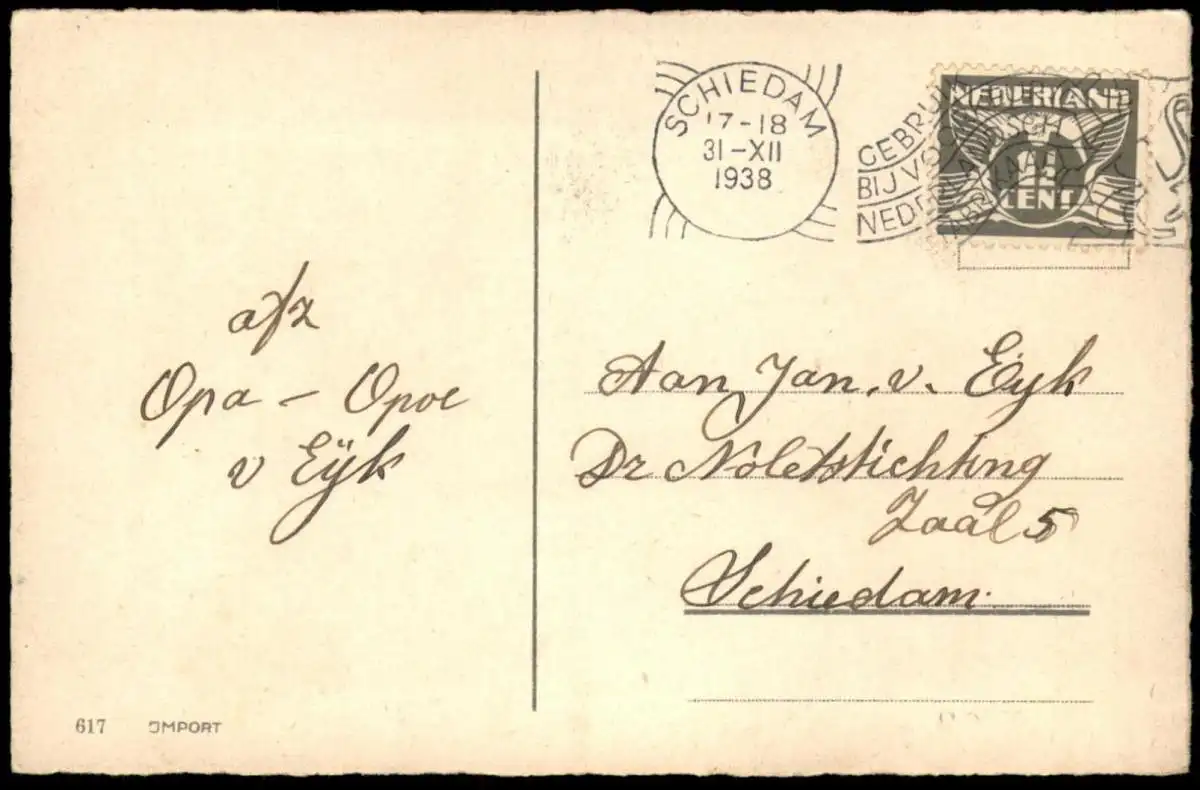 SCHIEDAM
17-18
31-XII
1938
GEBRUIK
BIJ VOO
NEDERLANDSCH
FABRIKAAT
NEDERLAND
CENT
a/z
Opa - Opoe
v Eÿk
Aan Jan. v. Eyk
Dr Noletstichting
Zaal 5
Schiedam.
617 IMPORT